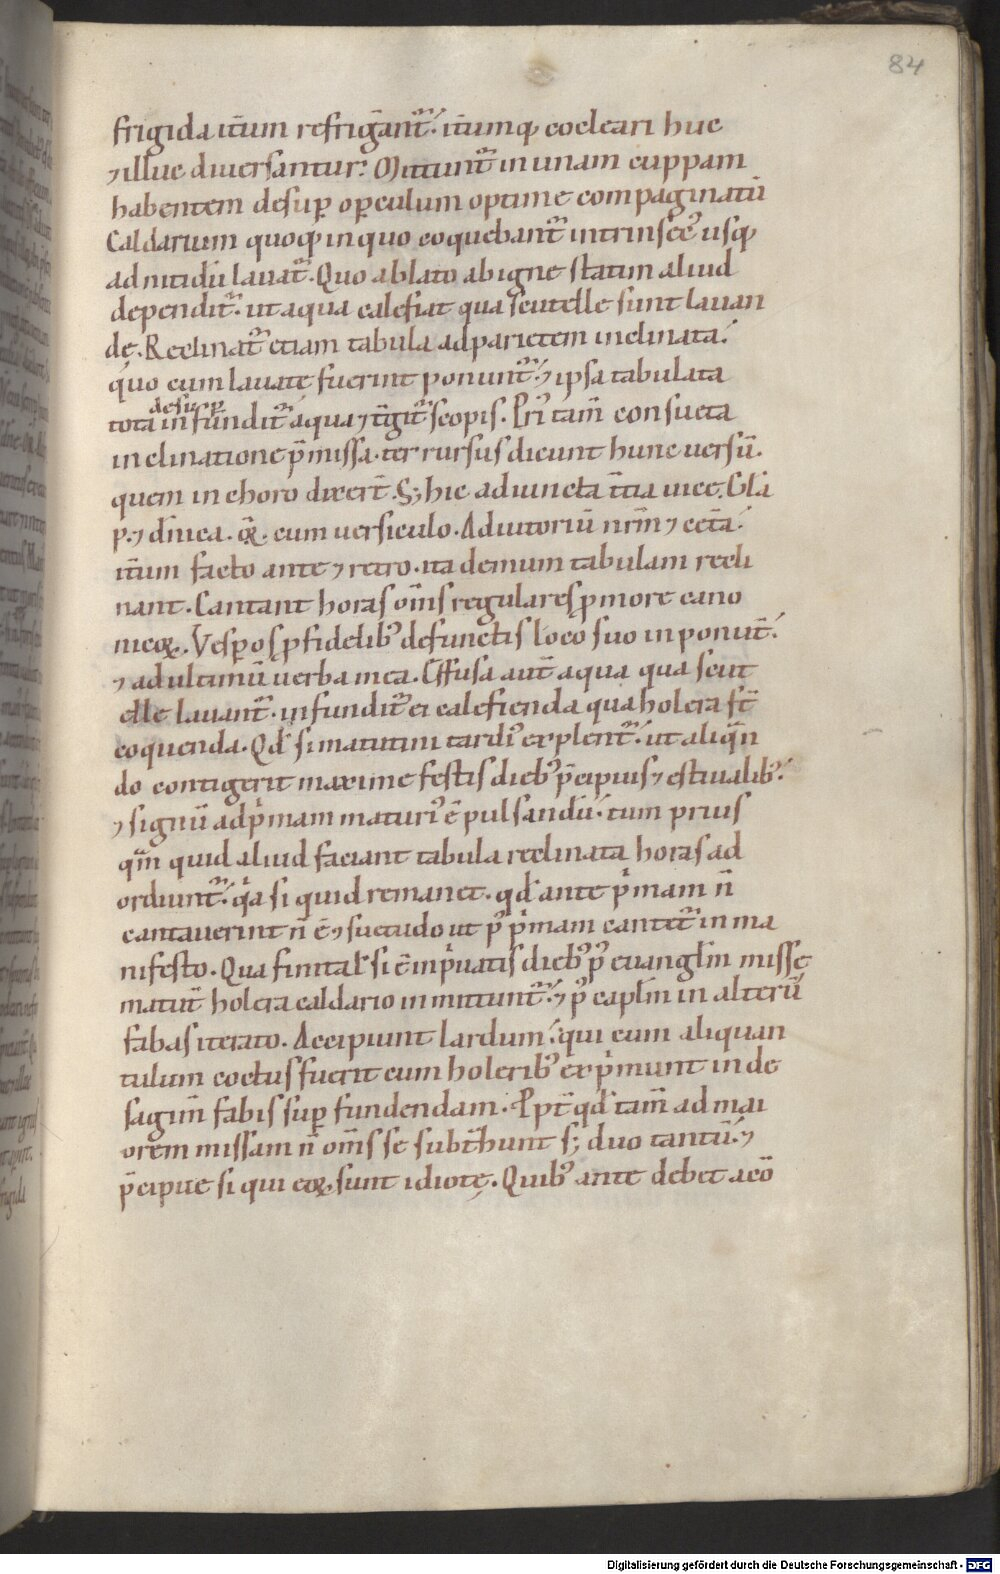 84
frigida itẽum refrigẽant᷑. itẽumq; cocleari huc
⁊ illuc diuersantur. Mittunt᷑ in unam cuppam
habentem desup̱ op̱culum optime compaginatũ
Caldarium quoq; in quo coquebant᷑ intrinsecꝰ usq;
ad nitidũ lauat᷑. Quo ablato ab igne statim aliud
dependit᷑. ut aqua calefiat qua scutelle sunt lauan
dę. Reclinat᷑ etiam tabula ad parietem inclinata.
quo cum lauate fuerint ponunt᷑. ⁊ ipsa tabulata
desup̱
tota infundit᷑ aqua ⁊ t̃git᷑ scopis. Priꝰ tam̃ consueta
inclinatione p̃missa. ter rursus dicunt hunc uersũ.
quem in choro dixer̃t. S; hic adiuncta t̃cia uice. Gl̃a
p. ⁊ dñica. q̃. cum uersiculo. Adiutoriũ nr̃m ⁊ cet̃a.
it̃um facto ante ⁊ retro. ita demum tabulam recli
nant. Cantant horas om̃s regulares p̱ more cano
nicoꝝ. Vesp̱os p̱ fidelibꝰ defunctis loco suo inponũt.
⁊ ad ultimũ uerba mea. Effusa aut̃ aqua qua scut
elle lauant᷑. infundit᷑ ei calefienda qua holera st̃
coquenda. Qđ si matutini tardiꝰ explent᷑. ut aliqñ
do contigerit maxime festis diebꝰ p̃cipuis ⁊ estiualibꝰ.
⁊ signũ ad pͥmam maturiꝰ ẽ pulsandũ. tum prius
qͣm quid aliud faciant tabula reclinata horas ad
ordiunt᷑. qͥa si quid remanet. qđ ante pͥmam ñ
cantauerint ñ ẽ ⁊suetudo ut pꝰ pͥmam cantet᷑ in ma
nifesto. Qua finita ł si ẽ in pͥuatis diebꝰ pꝰ euangl̃m misse
matut̃ holera caldario inmittunt᷑. ⁊ pꝰ capl̃m in alterũ
fabas iterato. Accipiunt lardum. qui cum aliquan
tulum coctus fuerit cum holeribꝰ expͥmunt inde
sagim̃ fabis sup̱ fundendam. Ppt̃ qđ tam̃ ad mai
orem missam ñ om̃s se subt̃hunt s; duo tantũ. ⁊
p̃cipue si qui eoꝝ sunt idiotę. Quibꝰ ante debet a cõ
Digitalisierung gefördert durch die Deutsche Forschungsgemeinschaft - DFG